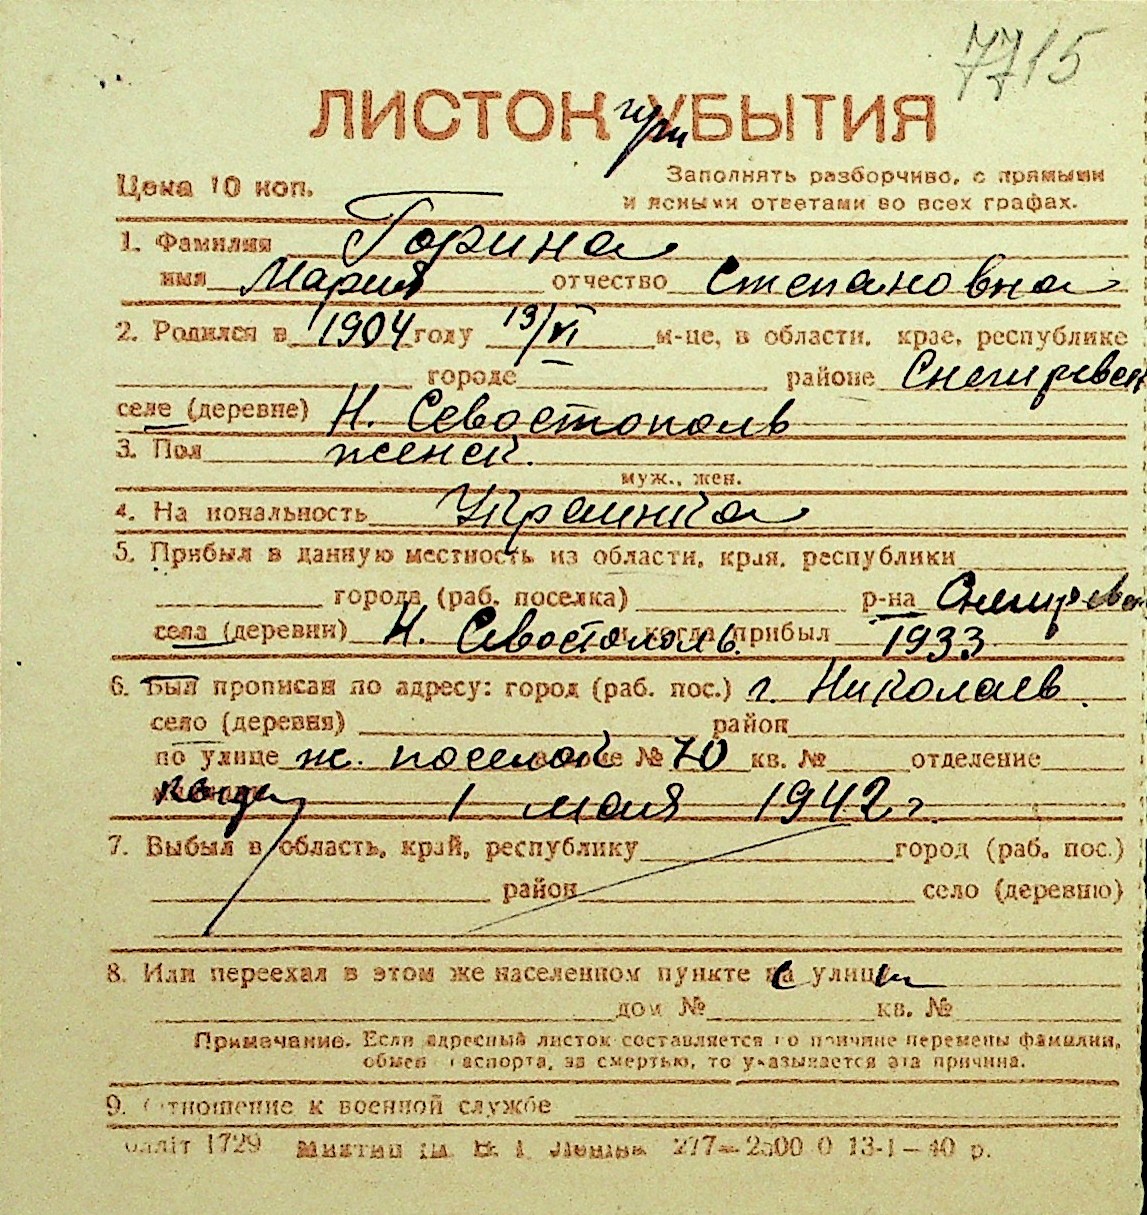 7715
ЛИСТОК при УБЫТИЯ
Цена 10 коп.
Заполнять разборчиво, с прямыми
и ясными ответами во всех графах.
1. Фамилия Горина
имя Мария отчество Степановна
2. Родился в 1904 году 13/VI м-це, в области, крае, республике
городе районе Снегиревск
селе (деревне) Н. Севостополь
3. Пол женск.
муж., жен.
4. На иональность Украинка
5. Прибыл в данную местность из области, края, республики
города (раб. поселка) р-на Снегирев
села (деревни) Н. Севостополь. и когда прибыл 1933
6. Был прописан по адресу: город (раб. пос.) г. Николаев.
село (деревня) район
по улице ж. поселок доме № 70 кв. № отделение
когда 1 мая 1942 г.
7. Выбыл в область, край, республику город (раб. пос.)
район село (деревню)
8. Или переехал в этом же населенном пункте с улицы
дом № кв. №
Примечание. Если адресный листок составляется по причине перемены фамилии,
обмен паспорта, за смертью, то указывается эта причина.
9. Отношение к военной службе
1729 277—2500 0 13-1—40 р.